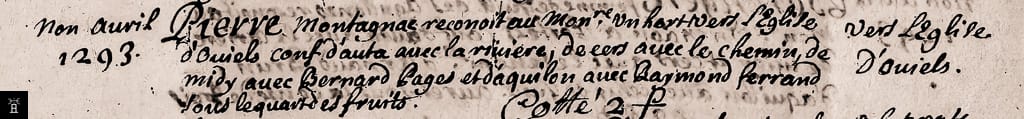 non Avril
1293.
Pierre Montagnac reconoit au Mon.re Un hort vers L'Eglise
d'oviels conf. d'auta avec la riviere, de cers avec le chemin, de
midy avec Bernard Pages et d'aquilon avec Raymond ferrand
sous le quart des fruits. Cotté 2 P
vers L'Eglise
D'oviels.